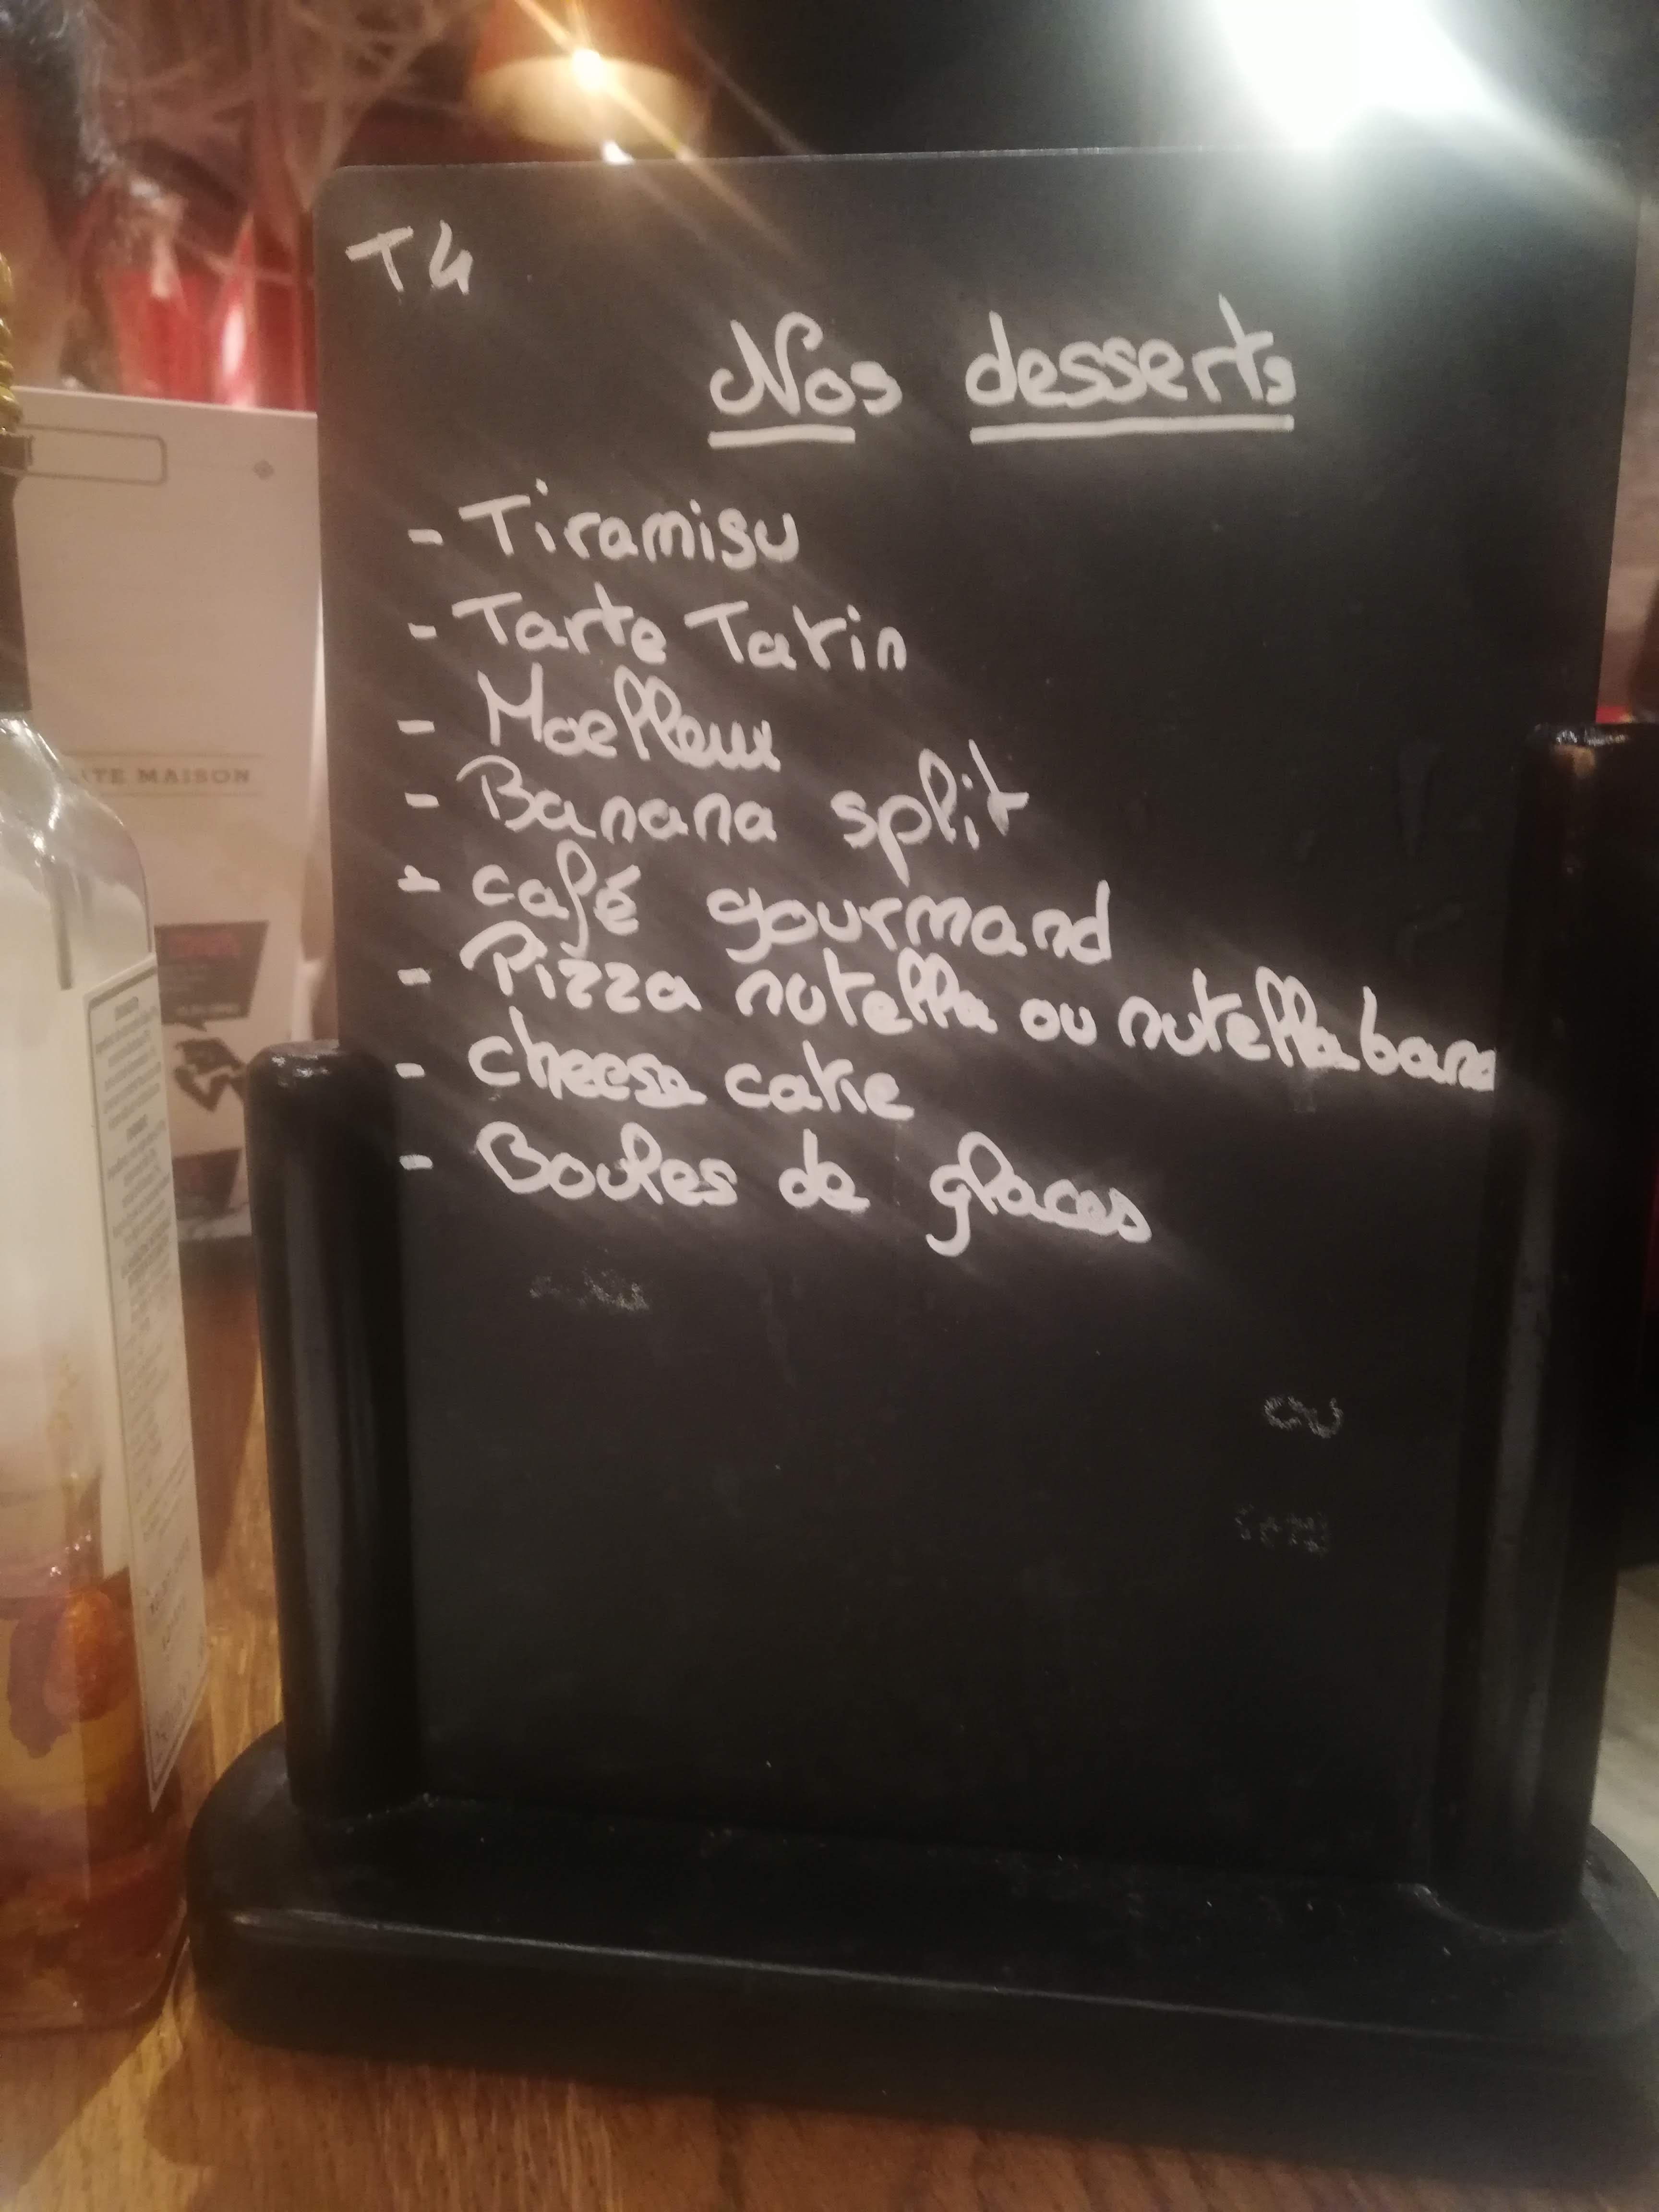 T4
Nos desserts
- Tiramisu
- Tarte Tatin
- Moelleux
- Banana split
- café gourmand
- Pizza nutella ou nutella bana
- cheese cake
- Boules de glaces
MAISON